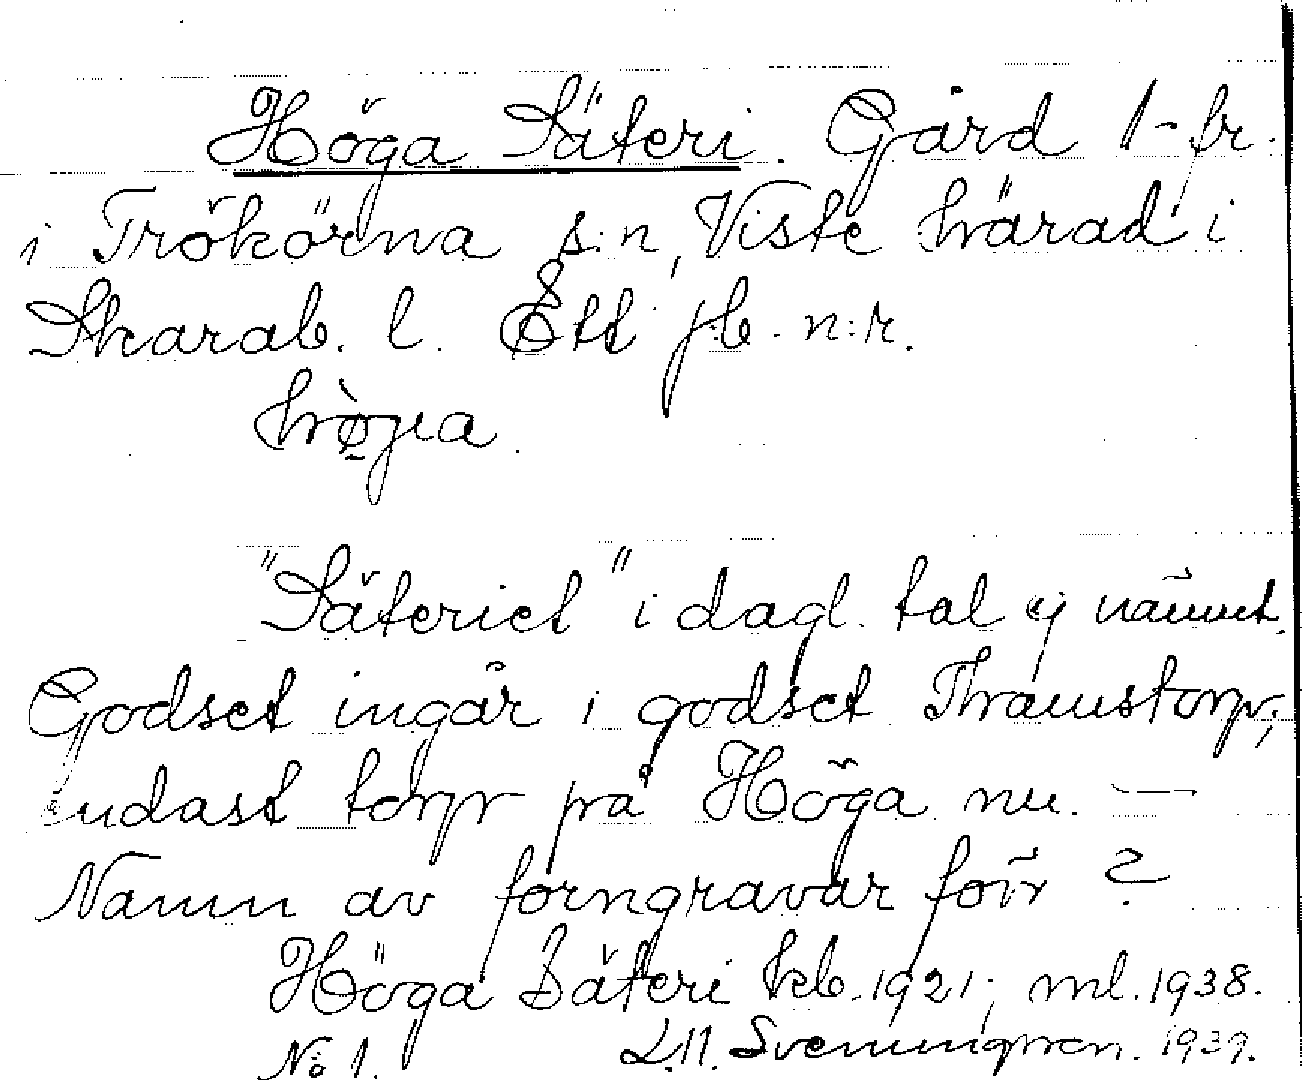 Höga Säteri. Gård 1-fr.
i Trökörna s:n, Viste härad i
Skarab. l. Ett jb. n:r.

"Säteriet" i dagl. tal ej nämnt.
Godset ingår i godset Thramstorp;
endast torp på Höga nu. —
Namn av forngravar förr ?
Höga Säteri kb. 1921; ml. 1938.
No 1. Svenungsson. 1939.